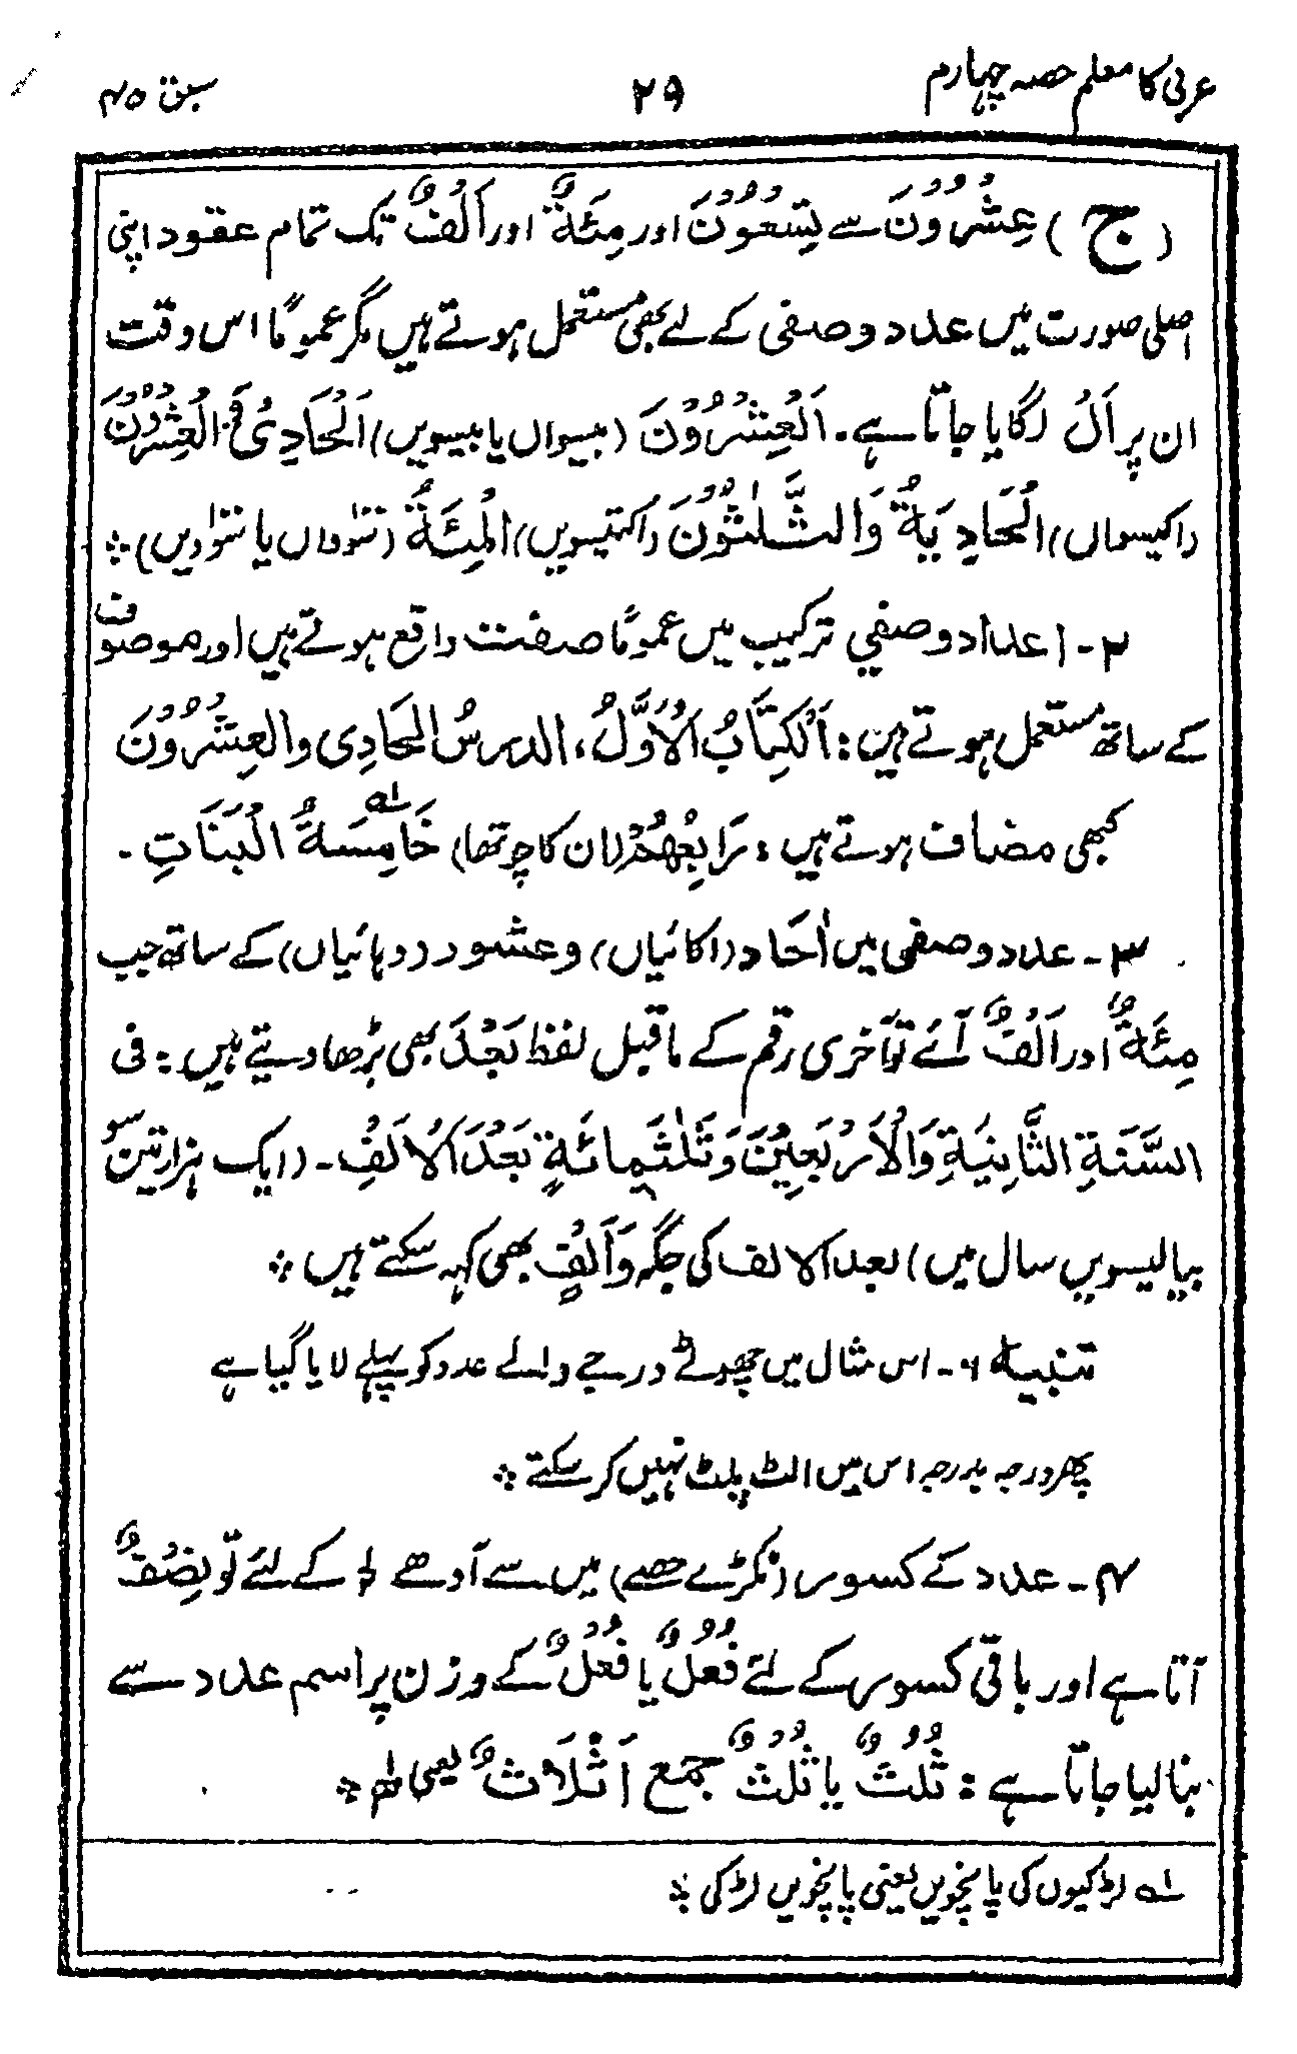 عربی کا معلم حصہ چہارم ۲۹ سبق ۴۵
(ج) عِشْرُوْنَ سے تِسْعُوْنَ اور مِئَةٌ اور اَلْفٌ تک تمام عقود اپنی
اصلی صورت میں عدد وصفی کے لئے بھی مستعمل ہوتے ہیں مگر عمومًا اس وقت
ان پر اَلْ لگایا جاتا ہے۔ اَلْعِشْرُوْنَ (بیسواں یا بیسویں) اَلْحَادِیْ وَ الْعِشْرُوْنَ
(اکیسواں) اَلْحَادِیَةُ وَالثَّلٰثُوْنَ (اکتیسویں) الْمِئَةُ (سَوواں یا سَوویں) ؞
۲۔ اعداد وصفی ترکیب میں عمومًا صفت واقع ہوتے ہیں اور موصوف
کے ساتھ مستعمل ہوتے ہیں : اَلْکِتَابُ الْاَوَّلُ، الدرسُ الحَادِی والعِشْرُوْنَ
کبھی مضاف ہوتے ہیں : رَابِعُهُمْ (ان کا چوتھا) خَامِسَةُ الْبَنَاتِ ۱ ۔
۳۔ عدد وصفی میں اٰحَاد (اکائیاں) و عشور (دہائیاں) کے ساتھ جب
مِئَةٌ اور اَلْفٌ آئے تو آخری رقم کے ماقبل لفظ بَعْدَ بھی بڑھا دیتے ہیں : فی
السَّنَةِ الثَّانِیَةِ وَالْاَرْبَعِیْنَ وَثَلٰثِمِائَةٍ بَعْدَ الْاَلْفِ ۔ (ایک ہزار تین سو
بیالیسویں سال میں) بعد الالف کی جگہ وَاَلْفٍ بھی کہہ سکتے ہیں ؞
تنبیہ ۶۔ اس مثال میں چھوٹے درجے والے عدد کو پہلے لایا گیا ہے
پھر درجہ بدرجہ اس میں الٹ پلٹ نہیں کر سکتے ؞
۴۔ عدد کے کسور (ٹکڑے حصے) میں سے آدھے ½ کے لئے تو نِصْفٌ
آتا ہے اور باقی کسور کے لئے فُعُلٌ یا فُعْلٌ کے وزن پر اسم عدد سے
بنا لیا جاتا ہے : ثُلُثٌ یا ثُلْثٌ جمع اَثْلَاثٌ یعنی ⅓ ؞
۱ لڑکیوں کی پانچویں یعنی پانچویں لڑکی ؞